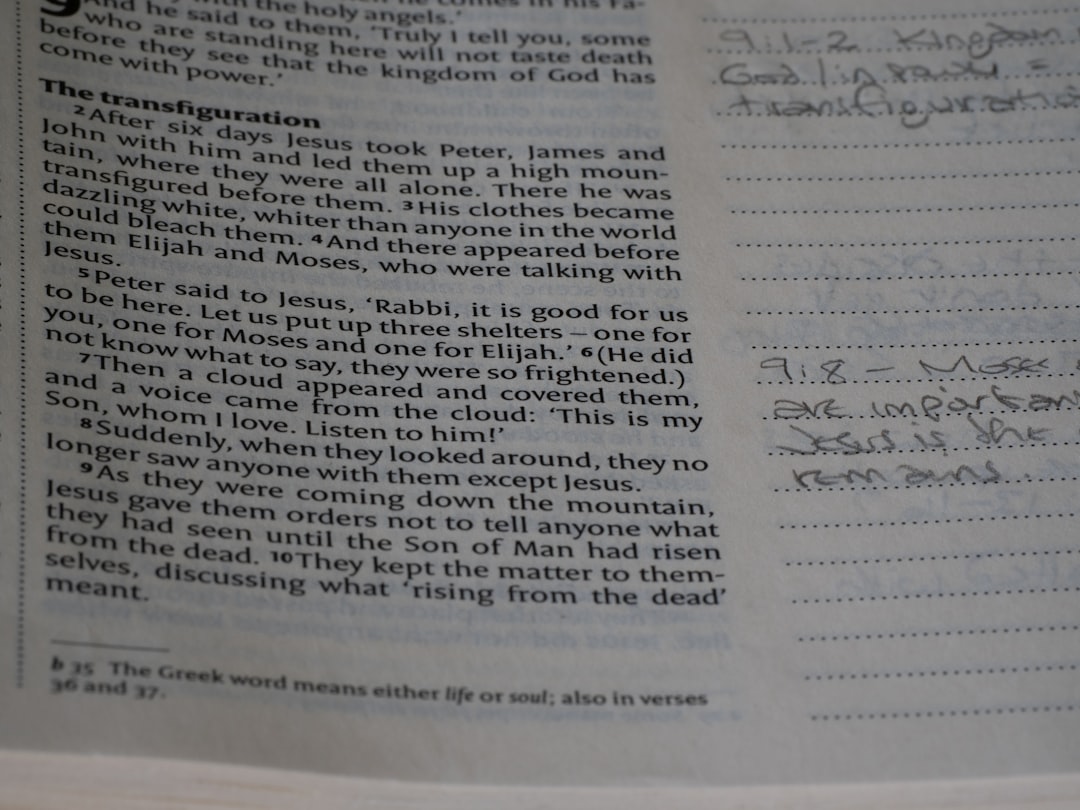 with the holy angels.'
9 And he said to them, 'Truly I tell you, some
who are standing here will not taste death
before they see that the kingdom of God has
come with power.'
The transfiguration
2 After six days Jesus took Peter, James and
John with him and led them up a high moun-
tain, where they were all alone. There he was
transfigured before them. 3 His clothes became
dazzling white, whiter than anyone in the world
could bleach them. 4 And there appeared before
them Elijah and Moses, who were talking with
Jesus.
5 Peter said to Jesus, 'Rabbi, it is good for us
to be here. Let us put up three shelters – one for
you, one for Moses and one for Elijah.' 6 (He did
not know what to say, they were so frightened.)
7 Then a cloud appeared and covered them,
and a voice came from the cloud: 'This is my
Son, whom I love. Listen to him!'
8 Suddenly, when they looked around, they no
longer saw anyone with them except Jesus.
9 As they were coming down the mountain,
Jesus gave them orders not to tell anyone what
they had seen until the Son of Man had risen
from the dead. 10 They kept the matter to them-
selves, discussing what 'rising from the dead'
meant.
b 35 The Greek word means either life or soul; also in verses
36 and 37.
9:1-2 Kingdom
God
transfiguratio
9:8 - Moses
are important
Jesus is the
remains.